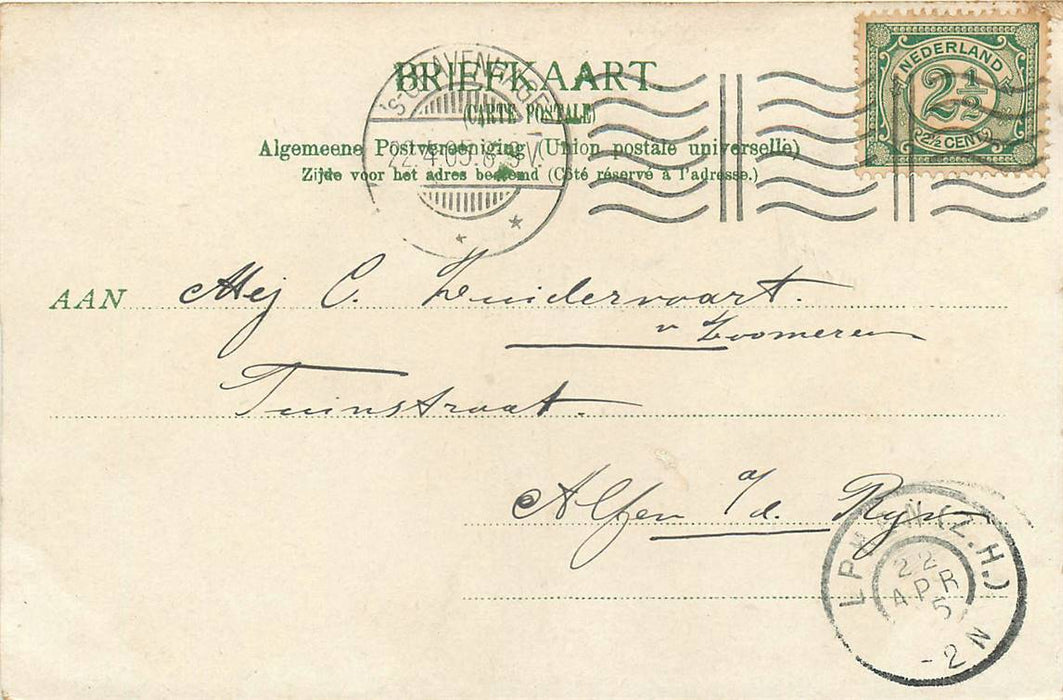 BRIEFKAART
(CARTE POSTALE)
Algemeene Postvereeniging (Union postale universelle)
Zijde voor het adres bestemd (Côté réservé à l'adresse.)
NEDERLAND
2½
2½ CENT
AAN Mej C. Zuidervaart.
v Zoomeren
Tuinstraat.
Alfen a/d. Rijn
(Z.H.)
22
APR
5
-2 N